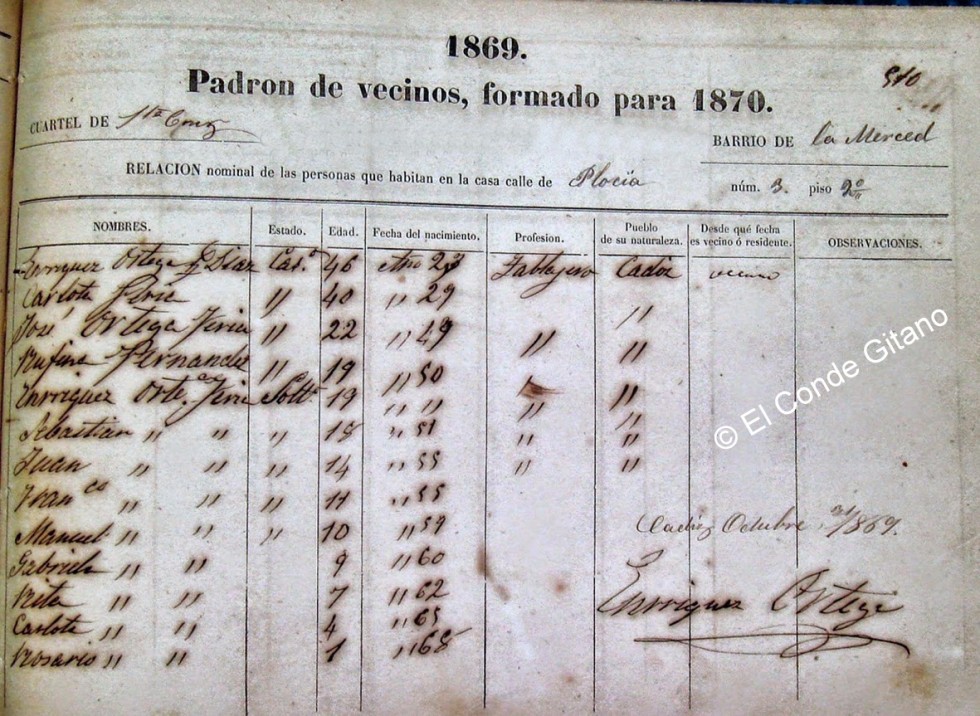 1869.
Padron de vecinos, formado para 1870.
510
CUARTEL DE Sta Cruz
BARRIO DE la Merced
RELACION nominal de las personas que habitan en la casa calle de Plocia núm. 3. piso 2º
NOMBRES. Estado. Edad. Fecha del nacimiento. Profesion. Pueblo de su naturaleza. Desde qué fecha es vecino ó residente. OBSERVACIONES.
Enrriquez Ortega Diaz Cas.º 46 Año 23 Tablajero Cadiz
Carlota Feria " 40 " 29 "
José Ortega Feria " 22 " 49 " "
Rufina Fernandez " 19 " 50 "
Enrriquez Orte.ga Feria Solt.º 19 " " " "
Sebastian " " " 18 " 51 " "
Juan " " " 14 " 55 " "
Fran.co " " " 11 " 55
Manuel " " " 10 " 59
Gabriela " " 9 " 60
Rita " " 7 " 62
Carlota " " 4 " 65
Rosario " " 1 " 68
Cadiz Octubre 1869.
Enrriquez Ortega
© El Conde Gitano